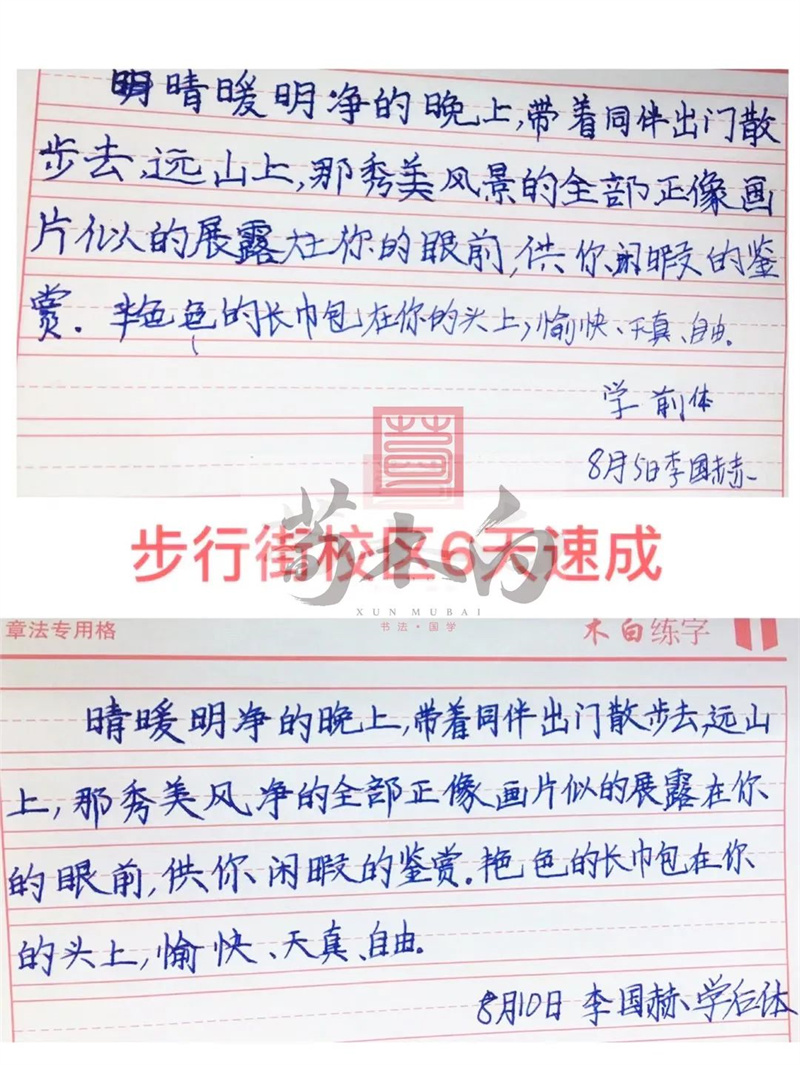 晴暖明净的晚上,带着同伴出门散
步去,远山上,那秀美风景的全部正像画
片似的展露在你的眼前,供你闲暇的鉴
赏.色的长巾包在你的头上,愉快、天真、自由.
学前体
8月5日李国赫
步行街校区6天速成
荀木白
XUN MUBAI
书法·国学
章法专用格
木白练字
晴暖明净的晚上,带着同伴出门散步去,远山
上,那秀美风净的全部正像画片似的展露在你
的眼前,供你闲暇的鉴赏.艳色的长巾包在你
的头上,愉快、天真、自由.
8月10日 李国赫、学后体